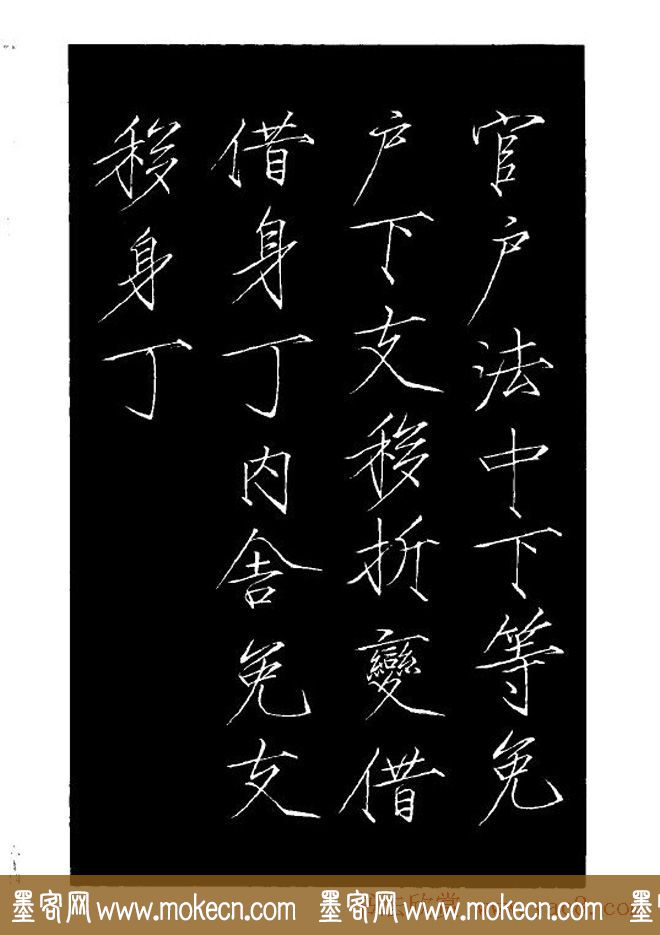 官户法中下等免
户下支移折變借
借身丁内舍免支
移身丁
墨客网 www.mokecn.com 墨客网 www.mokecn.com 墨